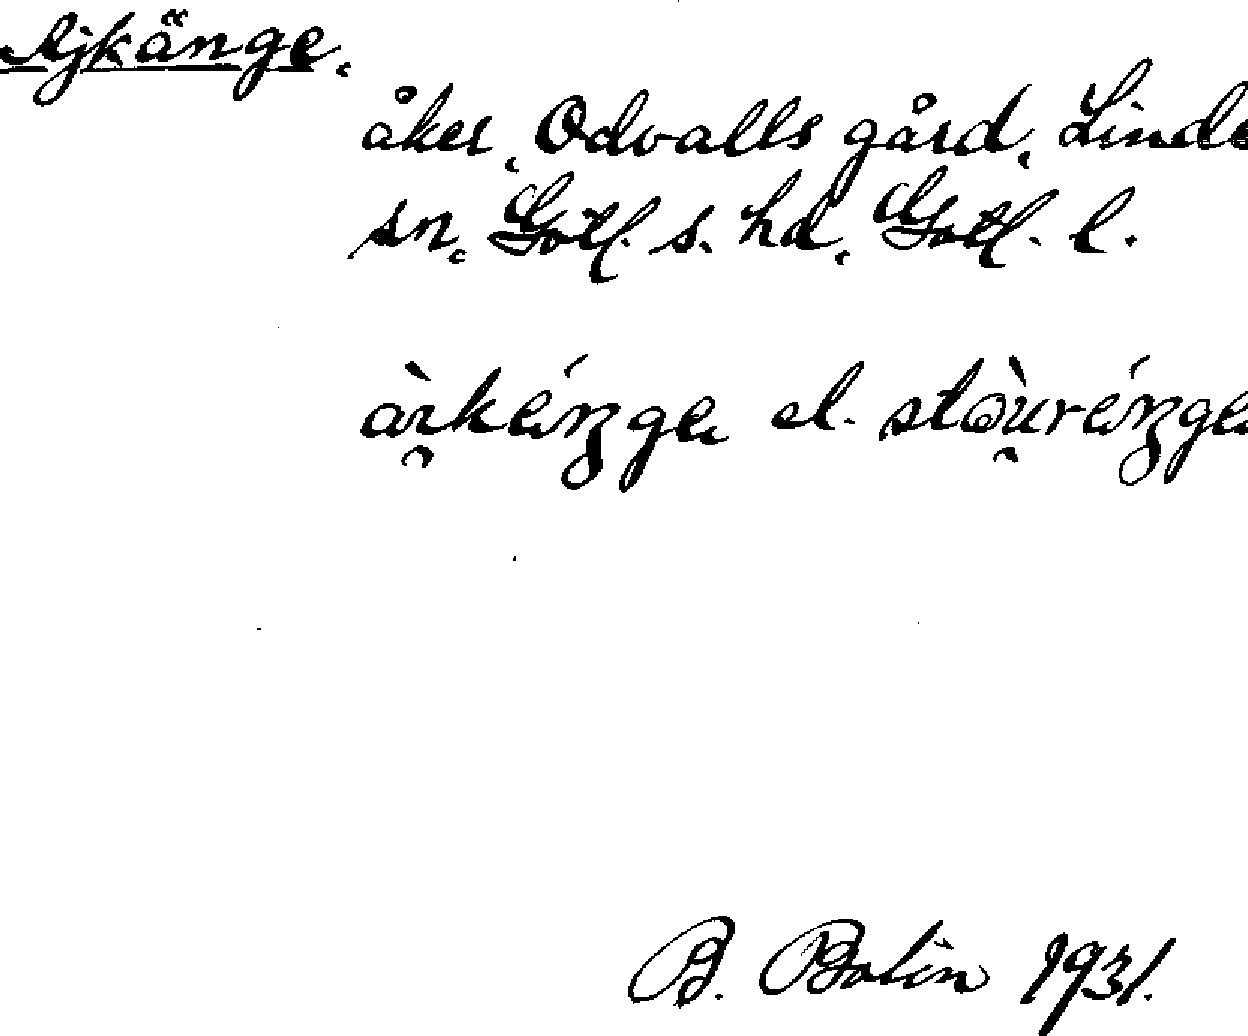 Ajkänge,
åker, Odvalls gård, Linde
sn, Gotl. s. hd, Gotl. l.
el.
B. Bolin 1931.